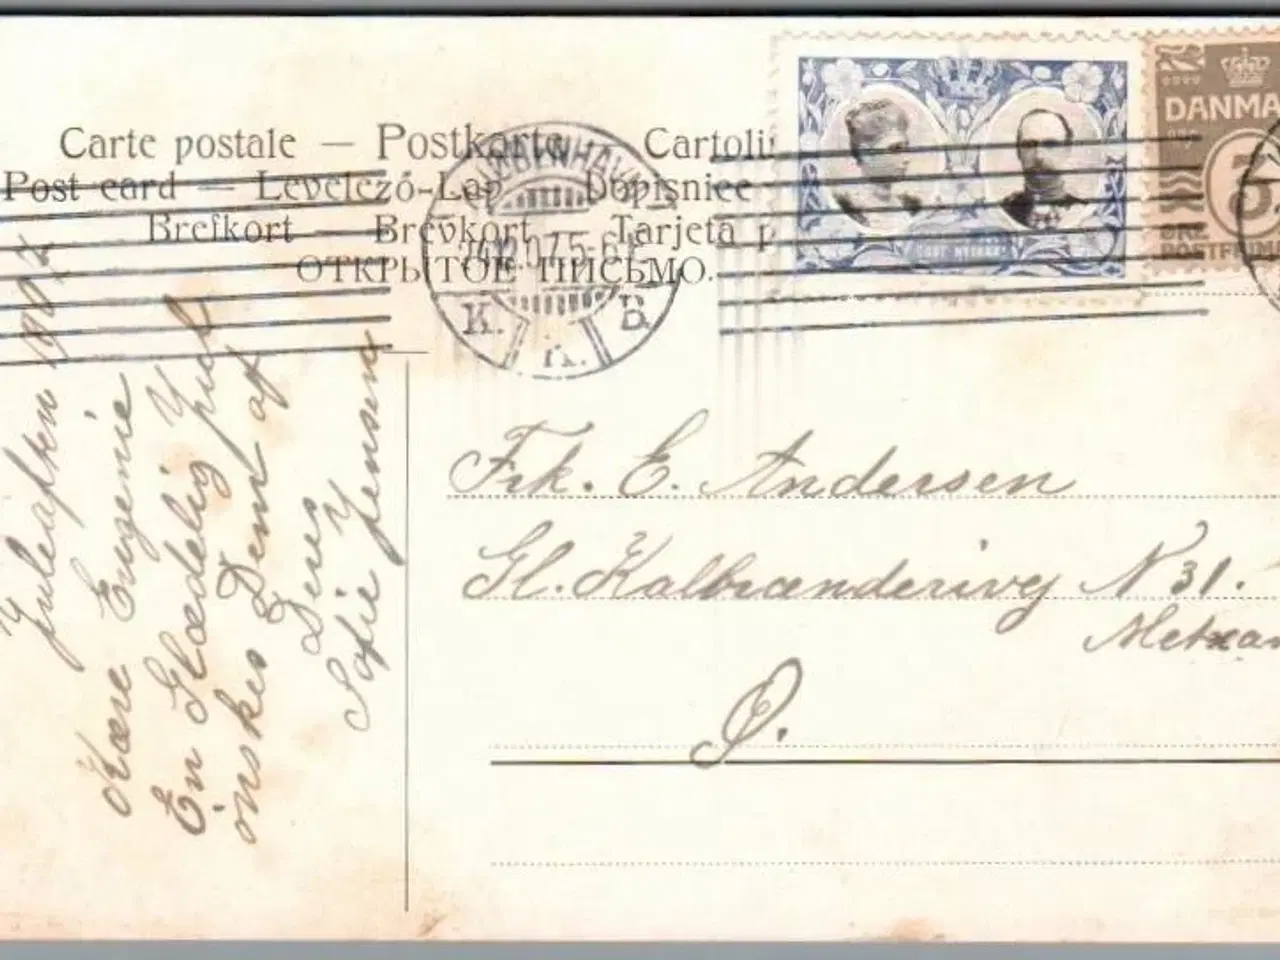 Carte postale — Postkarte Cartoli
Post card — Levelezó-Lap Dopisnice
Brefkort — Brevkort Tarjeta p
ОТКРЫТОЕ ПИСЬМО.
KJØBENHAVN
16.12.07.5-6
K. B.
DANMA
3
ØRE
POSTFRIM
Juleaften 1907
Kære Eugenie
En Glædelig Jul
önskes Dem af
Deres
Sofie Jensen
Frk. E. Andersen
Gl. Kalkbrænderivej N 31.
Ø.